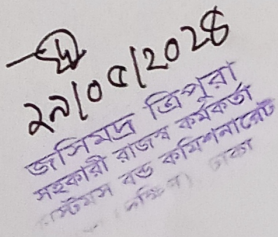 ২৯/০৫/২০২৪
জসিমদ্র ত্রিপুরা
সহকারী রাজস্ব কর্মকর্তা
কাস্টমস বন্ড কমিশনারেট
(দক্ষিণ), ঢাকা